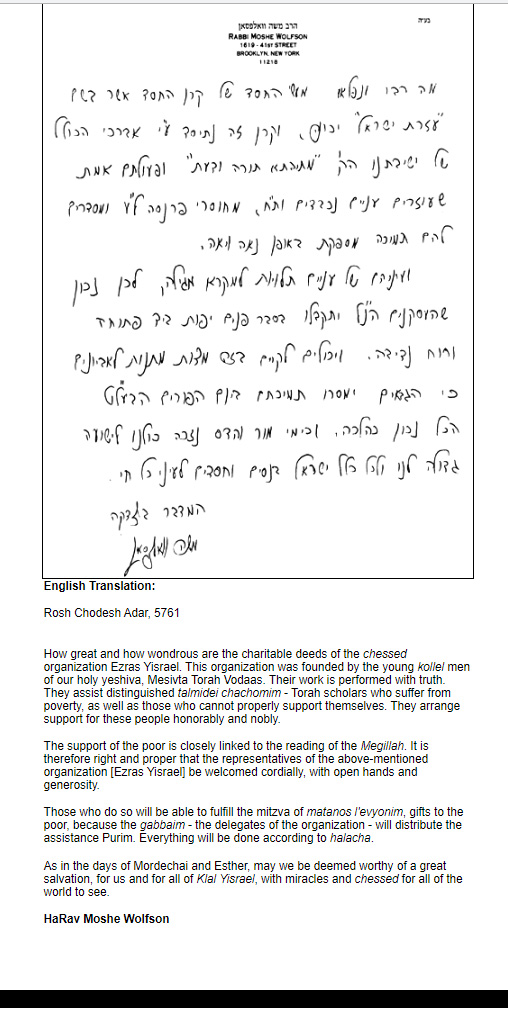 בעז"ה
הרב משה וואלפסאן
RABBI MOSHE WOLFSON
1619 - 41ST STREET
BROOKLYN, NEW YORK
11218
מה רבו ונפלאו מעשי החסד של קרן החסד אשר בשם
"עזרת ישראל" יכונן, וקרן זה נתיסד ע"י אברכי הכולל
של ישיבתנו הק' "מתיבתא תורה ודעת" ופעולתם אמת
שעוזרים עניים נכבדים ות"ח, מחוסרי פרנסה ל"ע ומסדרים
להם תמיכה מספקת באופן נאה ויאה.
ועיניהם של עניים תלויות למקרא מגילה, לכן נכון
שהעסקנים הנ"ל יתקבלו בסבר פנים יפות ביד פתוחה
ורוח נדיבה. ויכולים לקיים בזה מצות מתנות לאביונים
כי הגבאים ימסרו תמיכתם ביום הפורים הבעל"ט
הכל נכון כהלכה, ובימי מור והדס נזכה כולנו לישועה
גדולה לנו ולכל כלל ישראל בנסים וחסדים לעיני כל חי.
המדבר בצדקה
משה וואלפסאן
English Translation:
Rosh Chodesh Adar, 5761
How great and how wondrous are the charitable deeds of the chessed
organization Ezras Yisrael. This organization was founded by the young kollel men
of our holy yeshiva, Mesivta Torah Vodaas. Their work is performed with truth.
They assist distinguished talmidei chachomim - Torah scholars who suffer from
poverty, as well as those who cannot properly support themselves. They arrange
support for these people honorably and nobly.
The support of the poor is closely linked to the reading of the Megillah. It is
therefore right and proper that the representatives of the above-mentioned
organization [Ezras Yisrael] be welcomed cordially, with open hands and
generosity.
Those who do so will be able to fulfill the mitzva of matanos l'evyonim, gifts to the
poor, because the gabbaim - the delegates of the organization - will distribute the
assistance Purim. Everything will be done according to halacha.
As in the days of Mordechai and Esther, may we be deemed worthy of a great
salvation, for us and for all of Klal Yisrael, with miracles and chessed for all of the
world to see.
HaRav Moshe Wolfson